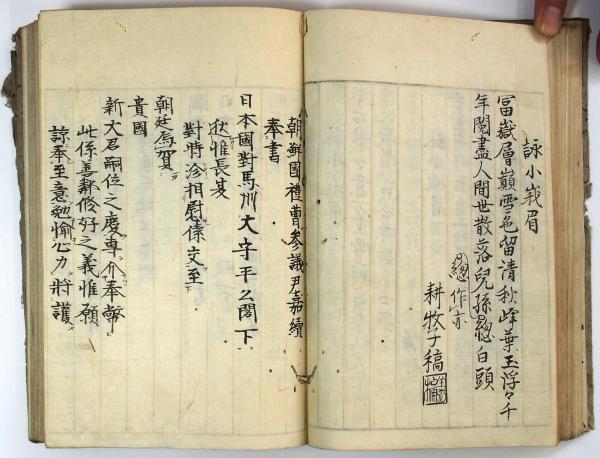 詠小峩眉
富嶽層巓雪色留清秋峰葉玉浮々千
年閲盡人間世散落兒孫總白頭
總作亦
耕牧子稿
朝鮮國禮曹參議尹嘉續
奉書
日本國對馬州大守平公閤下
秋惟長晷
對時洽相慰僕交至
朝廷爲賀
貴國
新大君嗣位之慶專介奉幣
此係善鄰修好之義惟願
諒奉至意勉愉心力將護